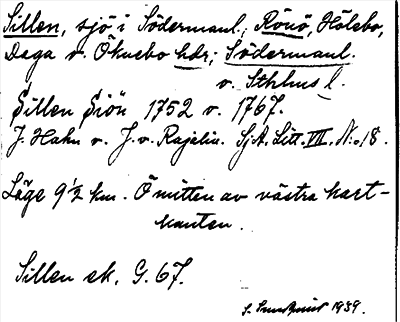 Sillen, sjö i Södermanl.; Rönö, Hölebo,
Daga o. Oknebo hdr; Södermanl.
o. Sthlms l.
Sillen Siön 1752 o. 1767.
J. Hahn o. J. v. Rajalin. SjA. Litt. VII. N:o 18.
Läge 9 1/2 km. Ö mitten av västra kart-
kanten.
Sillen ek. G. 67.
1939.